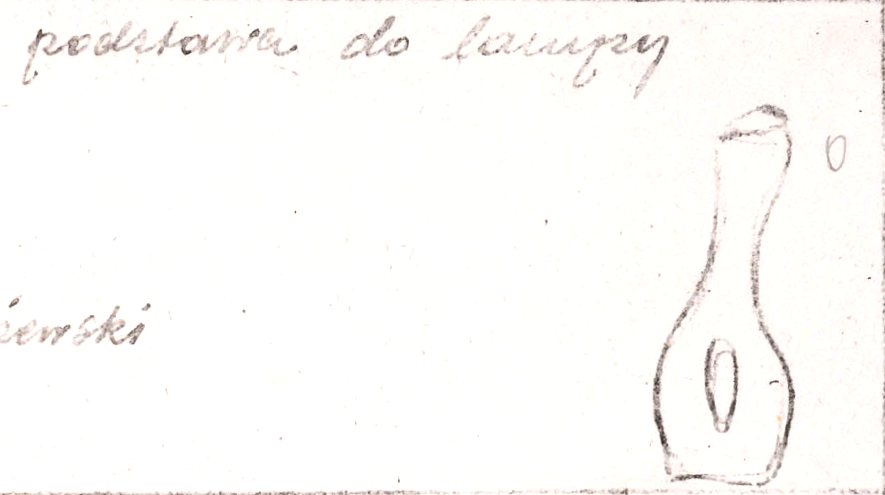 podstawa do lampy
żewski